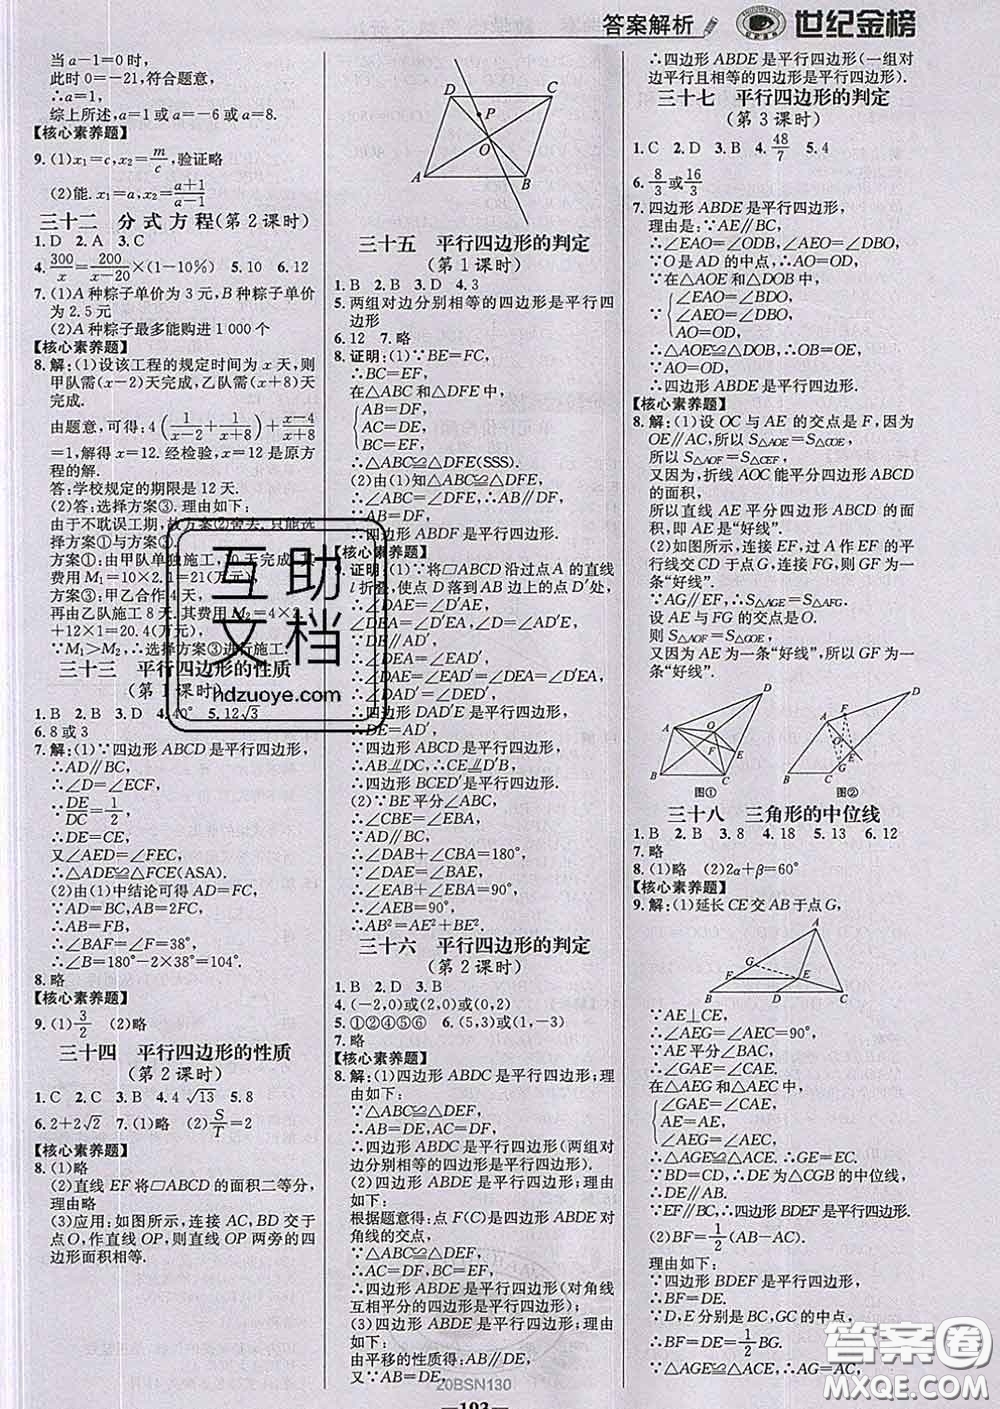 答案解析 世纪金榜
当a-1=0时,
此时0=-21,符合题意,
∴a=1,
综上所述,a=1或a=-6或a=8.
【核心素养题】
9.(1)x₁=c,x₂=m/c,验证略
(2)能.x₁=a,x₂=(a+1)/(a-1)
三十二 分式方程(第2课时)
1.D 2.A 3.C
4.300/x=200/(x-20)×(1-10%) 5.10 6.12
7.(1)A种粽子单价为3元,B种粽子单价
为2.5元
(2)A种粽子最多能购进1 000个
【核心素养题】
8.解:(1)设该工程的规定时间为x天,则
甲队需(x-2)天完成,乙队需(x+8)天
完成.
由题意,可得:4(1/(x-2)+1/(x+8))+(x-4)/(x+8)
=1,解得x=12.经检验,x=12是原方
程的解.
答:学校规定的期限是12天.
(2)答:选择方案③.理由如下:
由于不耽误工期,故方案②舍去.只能选
择方案①与方案③.
方案①:由甲队单独施工,10天完成.其
费用M₁=10×2.1=21(万元),
方案③:甲乙合作4天,
再由乙队施工8天.其费用M₂=4×2.1
+12×1=20.4(万元),
∵M₁>M₂,∴选择方案③进行施工.
三十三 平行四边形的性质
(第1课时)
1.B 2.B 3.D 4.40° 5.12√3
6.8或3
7.解:(1)∵四边形ABCD是平行四边形,
∴AD∥BC,
∴∠D=∠ECF,
∵DE/DC=1/2,
∴DE=CE,
又∠AED=∠FEC,
∴△ADE≌△FCE(ASA).
(2)由(1)中结论可得AD=FC,
∵AD=BC,AB=2FC,
∴AB=FB,
∴∠BAF=∠F=38°,
∴∠B=180°-2×38°=104°.
8.略
【核心素养题】
9.(1)3/2 (2)略
三十四 平行四边形的性质
(第2课时)
1.C 2.C 3.B 4.4√13 5.8
6.2+2√2 7.(1)略 (2)S/T=2
【核心素养题】
8.(1)略
(2)直线EF将□ABCD的面积二等分,
理由略
(3)应用:如图所示,连接AC,BD交于
点O,作直线OP,则直线OP两旁的四
边形面积相等.
D C
P
O
A B
三十五 平行四边形的判定
(第1课时)
1.B 2.B 3.D 4.3
5.两组对边分别相等的四边形是平行四
边形
6.12 7.略
8.证明:(1)∵BE=FC,
∴BC=EF,
在△ABC和△DFE中,
AB=DF,
AC=DE,
BC=EF,
∴△ABC≌△DFE(SSS).
(2)由(1)知△ABC≌△DFE,
∴∠ABC=∠DFE,∴AB∥DF,
∵AB=DF,
∴四边形ABDF是平行四边形.
【核心素养题】
9.证明:(1)∵将□ABCD沿过点A的直线
l折叠,使点D落到AB边上的点D′处,
∴∠DAE=∠D′AE,
∠DEA=∠D′EA,∠D=∠AD′E,
∵DE∥AD′,
∴∠DEA=∠EAD′,
∴∠DAE=∠EAD′=∠DEA=∠D′EA,
∴∠DAD′=∠DED′,
∴四边形DAD′E是平行四边形,
∴DE=AD′,
∵四边形ABCD是平行四边形,
∴AB∥DC,∴CE∥D′B,
∴四边形BCED′是平行四边形.
(2)∵BE平分∠ABC,
∴∠CBE=∠EBA,
∵AD∥BC,
∴∠DAB+∠CBA=180°,
∵∠DAE=∠BAE,
∴∠EAB+∠EBA=90°,
∴∠AEB=90°,
∴AB²=AE²+BE².
三十六 平行四边形的判定
(第2课时)
1.B 2.D 3.B
4.(-2,0)或(2,0)或(0,2)
5.①②④⑤⑥ 6.(5,3)或(1,-3)
7.略
【核心素养题】
8.解:(1)四边形ABDC是平行四边形;理
由如下:
∵△ABC≌△DEF,
∴AB=DE,AC=DF,
∴四边形ABDC是平行四边形(两组对
边分别相等的四边形是平行四边形).
(2)四边形ABDE是平行四边形;理由
如下:
根据题意得:点F(C)是四边形ABDE对
角线的交点,
∵△ABC≌△DEF,
∴AC=DF,BC=EF,
∴四边形ABDE是平行四边形(对角线
互相平分的四边形是平行四边形);
(3)四边形ABDE是平行四边形;理由
如下:
由平移的性质得:AB∥DE,
又∵△ABC≌△DEF,
∴AB=DE,
∴四边形ABDE是平行四边形(一组对
边平行且相等的四边形是平行四边形).
三十七 平行四边形的判定
(第3课时)
1.C 2.D 3.B 4.48/7 5.4
6.8/3或16/3
7.四边形ABDE是平行四边形,
理由是:∵AE∥BC,
∴∠EAO=∠ODB,∠AEO=∠DBO,
∵O是AD的中点,∴AO=OD,
在△AOE和△DOB中,
∵∠EAO=∠BDO,
∠AEO=∠EBD,
AO=OD,
∴△AOE≌△DOB,∴OB=OE,
∵AO=OD,
∴四边形ABDE是平行四边形.
【核心素养题】
8.解:(1)设OC与AE的交点是F,因为
OE∥AC,所以S△AOE=S△COE,
所以S△AOF=S△CEF,
又因为,折线AOC能平分四边形ABCD
的面积,
所以直线AE平分四边形ABCD的面
积,即AE是“好线”.
(2)如图所示,连接EF,过A作EF的平
行线交CD于点G,连接FG,则GF为
一条“好线”.
∵AG∥EF,∴S△AGE=S△AFG.
设AE与FG的交点是O.
则S△AOF=S△GOE,
又AE为一条“好线”,所以GF为一条
“好线”.
D
A
O
F E
B C
图①
D
A F
O
E
G
B C
图②
三十八 三角形的中位线
1.B 2.B 3.8 4.18 5.13 6.12
7.略
8.(1)略 (2)2α+β=60°
【核心素养题】
9.解:(1)延长CE交AB于点G,
A
G
F E
B D C
∵AE⊥CE,
∴∠AEG=∠AEC=90°,
∵AE平分∠BAC,
∴∠GAE=∠CAE,
在△AEG和△AEC中,
∠GAE=∠CAE,
AE=AE,
∠AEG=∠AEC,
∴△AGE≌△ACE.∴GE=EC.
∵BD=CD,∴DE为△CGB的中位线,
∴DE∥AB.
∵EF∥BC,∴四边形BDEF是平行四边形.
(2)BF=1/2(AB-AC).
理由如下:
∵四边形BDEF是平行四边形,
∴BF=DE.
∵D,E分别是BC,GC的中点,
∴BF=DE=1/2BG.
∵△AGE≌△ACE,
互助
文档
hdzuoye.com
答案圈
MXQE.COM
20BSN130
—193—